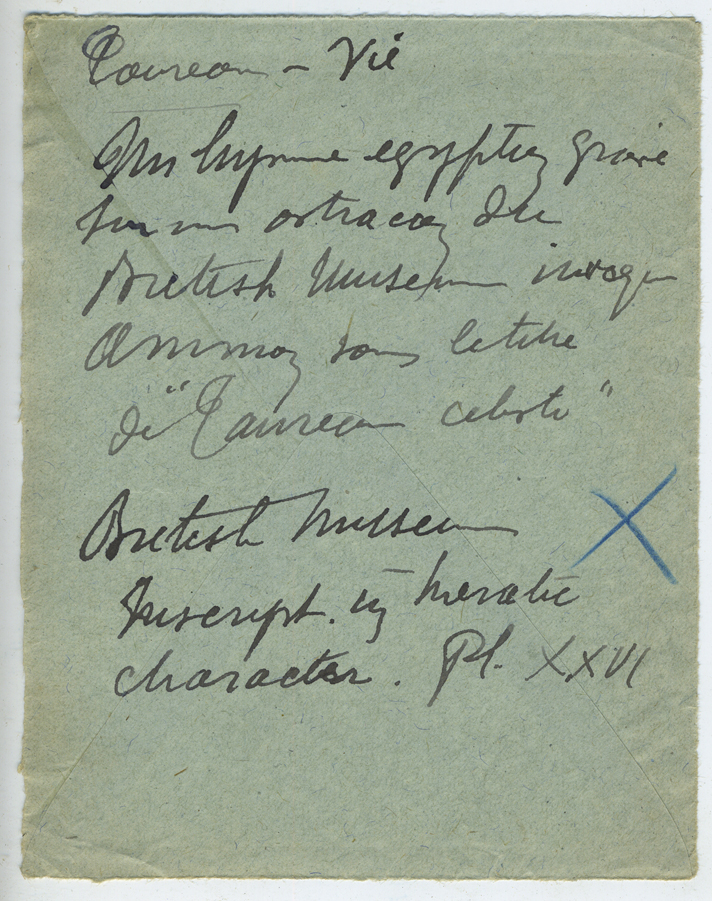 Taureau – Vie
Un hymne egyptien gravé
sur un ostracon du
British Museum invoque
Ammon sous le titre
de "Taureau celeste"
British Museum
Inscript. in hieratic
character. Pl. XXVI